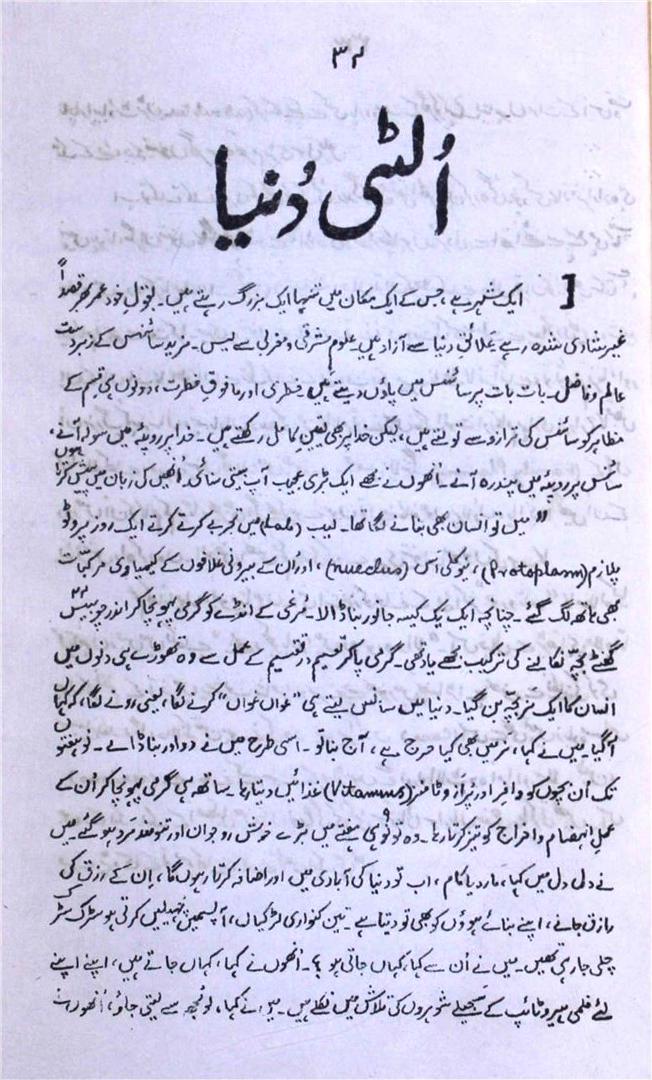 ۳۴
اُلٹی دُنیا
[ ایک شہر ہے، جس کے ایک مکان میں تنہا ایک بزرگ رہتے ہیں۔ بقول خود عمر بھر قصداً
غیر شادی شدہ رہے علائقِ دنیا سے آزاد ہیں۔ علوم مشرقی و مغربی سے لیس۔ مزید سائنس کے زبردست
عالم و فاضل۔ بات بات پر سائنس میں پاؤں دیتے ہیں۔ فطری اور ما فوقِ فطرت، دونوں ہی قسم کے
مظاہر کو سائنس کی ترازو سے تولتے ہیں، لیکن خدا پر بھی یقینِ کامل رکھتے ہیں۔ خدا پر روپیہ میں سولہ آنے،
سائنس پر روپیہ میں پندرہ آنے۔ انھوں نے مجھے ایک بڑی عجیب آپ بیتی سنائی۔ اُنھیں کی زبان میں پیش کرتا ہوں
"میں تو انسان بھی بنانے لگا تھا۔ لیب (Lab) میں تجربے کرتے کرتے ایک روز پروٹو
پلازم (Protoplasm)، نیوکلی اس (nuecleus)، اور اُن کے بیرونی غلافوں کے کیمیاوی مرکبات
بھی ہاتھ لگ گئے۔ چنانچہ ایک یک کیسہ جانور بنا ڈالا۔ مرغی کے انڈے کو گرمی پہونچا کر اندر چوبیس ۲۴
گھنٹے بچہ نکالنے کی ترکیب مجھے یاد تھی۔ گرمی پا کر تقسیم در تقسیم کے عمل سے وہ تھوڑے ہی دنوں میں
انسان کا ایک نر بچہ بن گیا۔ دنیا میں سانس لیتے ہی "غواں غواں" کرنے لگا، یعنی رونے لگا، کہ کہاں
آ گیا۔ میں نے کہا، نر میں بھی کیا حرج ہے، آج بنا تو۔ اسی طرح میں نے دو اور بنا ڈالے۔ نو ہفتوں
تک اُن بچوں کو وافر اور پُر از وٹامنز (Vitamins) غذائیں دیتا رہا۔ ساتھ ہی گرمی پہونچا کر اُن کے
عملِ انہضام و افراج کو تیز کرتا رہا۔ وہ نو نو ہی ہفتے میں بڑے خوش رو جوان اور تنومند مرد ہو گئے۔ میں
نے دل دل میں کہا، مار دیا کام، اب تو دنیا کی آبادی میں اور اضافہ کرتا رہوں گا، اِن کے رزق کی
رازق جانے، اپنے بنائے ہوؤں کو بھی تو دیتا ہے۔ تین کنواری لڑکیاں، آپسمیں چہلیں کرتی ہو سڑک سڑک
چلی جا رہی تھیں۔ میں نے اُن سے کہا، کہاں جاتی ہو ؟۔ انھوں نے کہا، کہاں جاتے ہیں، اپنے اپنے
لئے فلمی ہیرو ٹائپ کے سجیلے شوہروں کی تلاش میں نکلے ہیں۔ میں نے کہا، لو مجھ سے لیتی جاؤ، انھوں نے